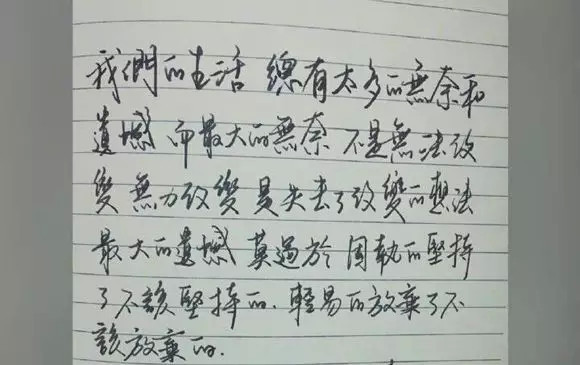 我們的生活 總有太多的無奈和
遺憾 而最大的無奈 不是無法改
變 無力改變 是失去了改變的想法
最大的遺憾 莫過於 固執的堅持
了不該堅持的.輕易的放棄了不
該放棄的.